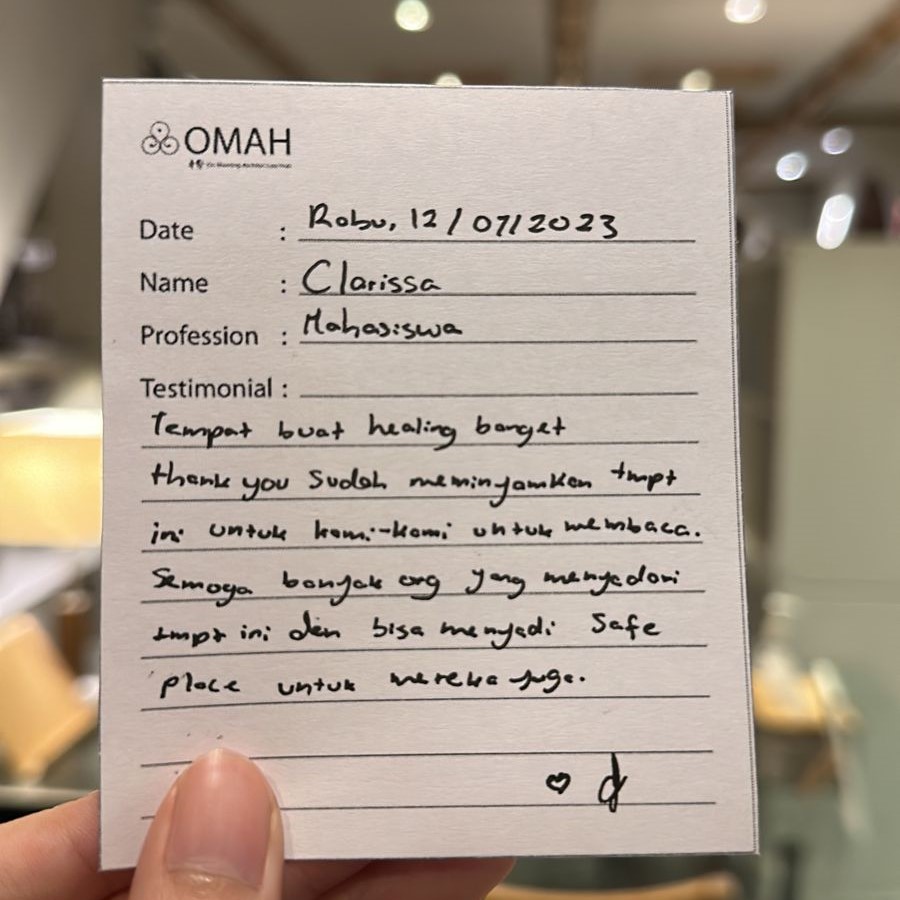 OMAH
Date : Rabu, 12/07/2023
Name : Clarissa
Profession : Mahasiswa
Testimonial :
Tempat buat healing banget
thank you sudah meminjamkan tmpt
ini untuk kami-kami untuk membaca.
Semoga banyak org yang menyadari
tmpt ini dan bisa menjadi safe
place untuk mereka juga.
♡